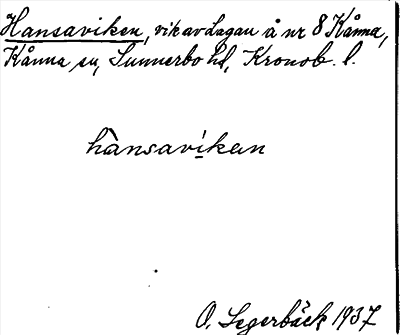 Hansaviken, vik av Lagan å nr 8 Kånna,
Kånna sn, Sunnerbo hd, Kronob. l.
hànsavíken
O. Segerbäck 1937